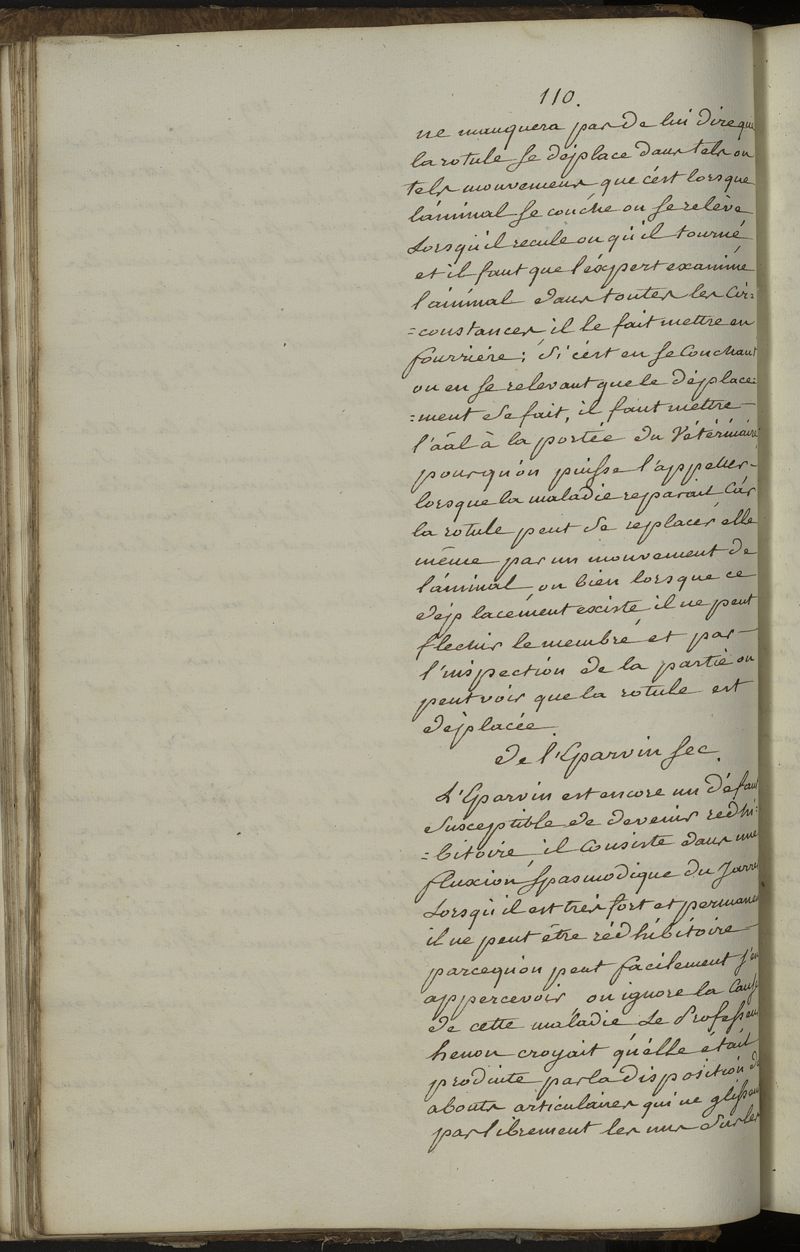 110.
ne manquera pas de lui dire que
la rotule se déplace dans tels ou
tels mouvemens que c'ést lorsque
l'ánimal se couche ou se relève
Lorsqu'il recule ou qu'il tourné
et il faut que l'éxpert examine
l'animal dans toutes les cir=
=constances, il le fait mettre en
fourriére; Si c'ést en se Couchant
ou en se relevant que le déplace=
=ment se fait, il faut mettre
l'aãl à la portée du Vétérinaire
pour qu'ón puisse l'appeller
lorsque la maladie reparait Car
la rotule peut se replacer élle
même par un mouvement de
l'ánimal ou bien lorsque ce
déplacement existe il ne peut
flechir le membre et par
l'inspection de la partie on
peut voir que la rotule est
déplacée.
De l'Eparvin sec.
L'Eparvin est encore un défaut
Susceptible de devenir redhi=
=bitoire il Consiste dans une
fluxion Spasmodique du Jarret
Lorsqu'il est très fort et permanent
il ne peut être rédhibitoire
parcequ'on peut facilement s'en
appercevoir on ignore la Cause
de cette maladie Le Professeur
henon croyait qu'élle était
produite par la disposition des
abouts articulaires qui ne glissent
pas librement les uns Sur les